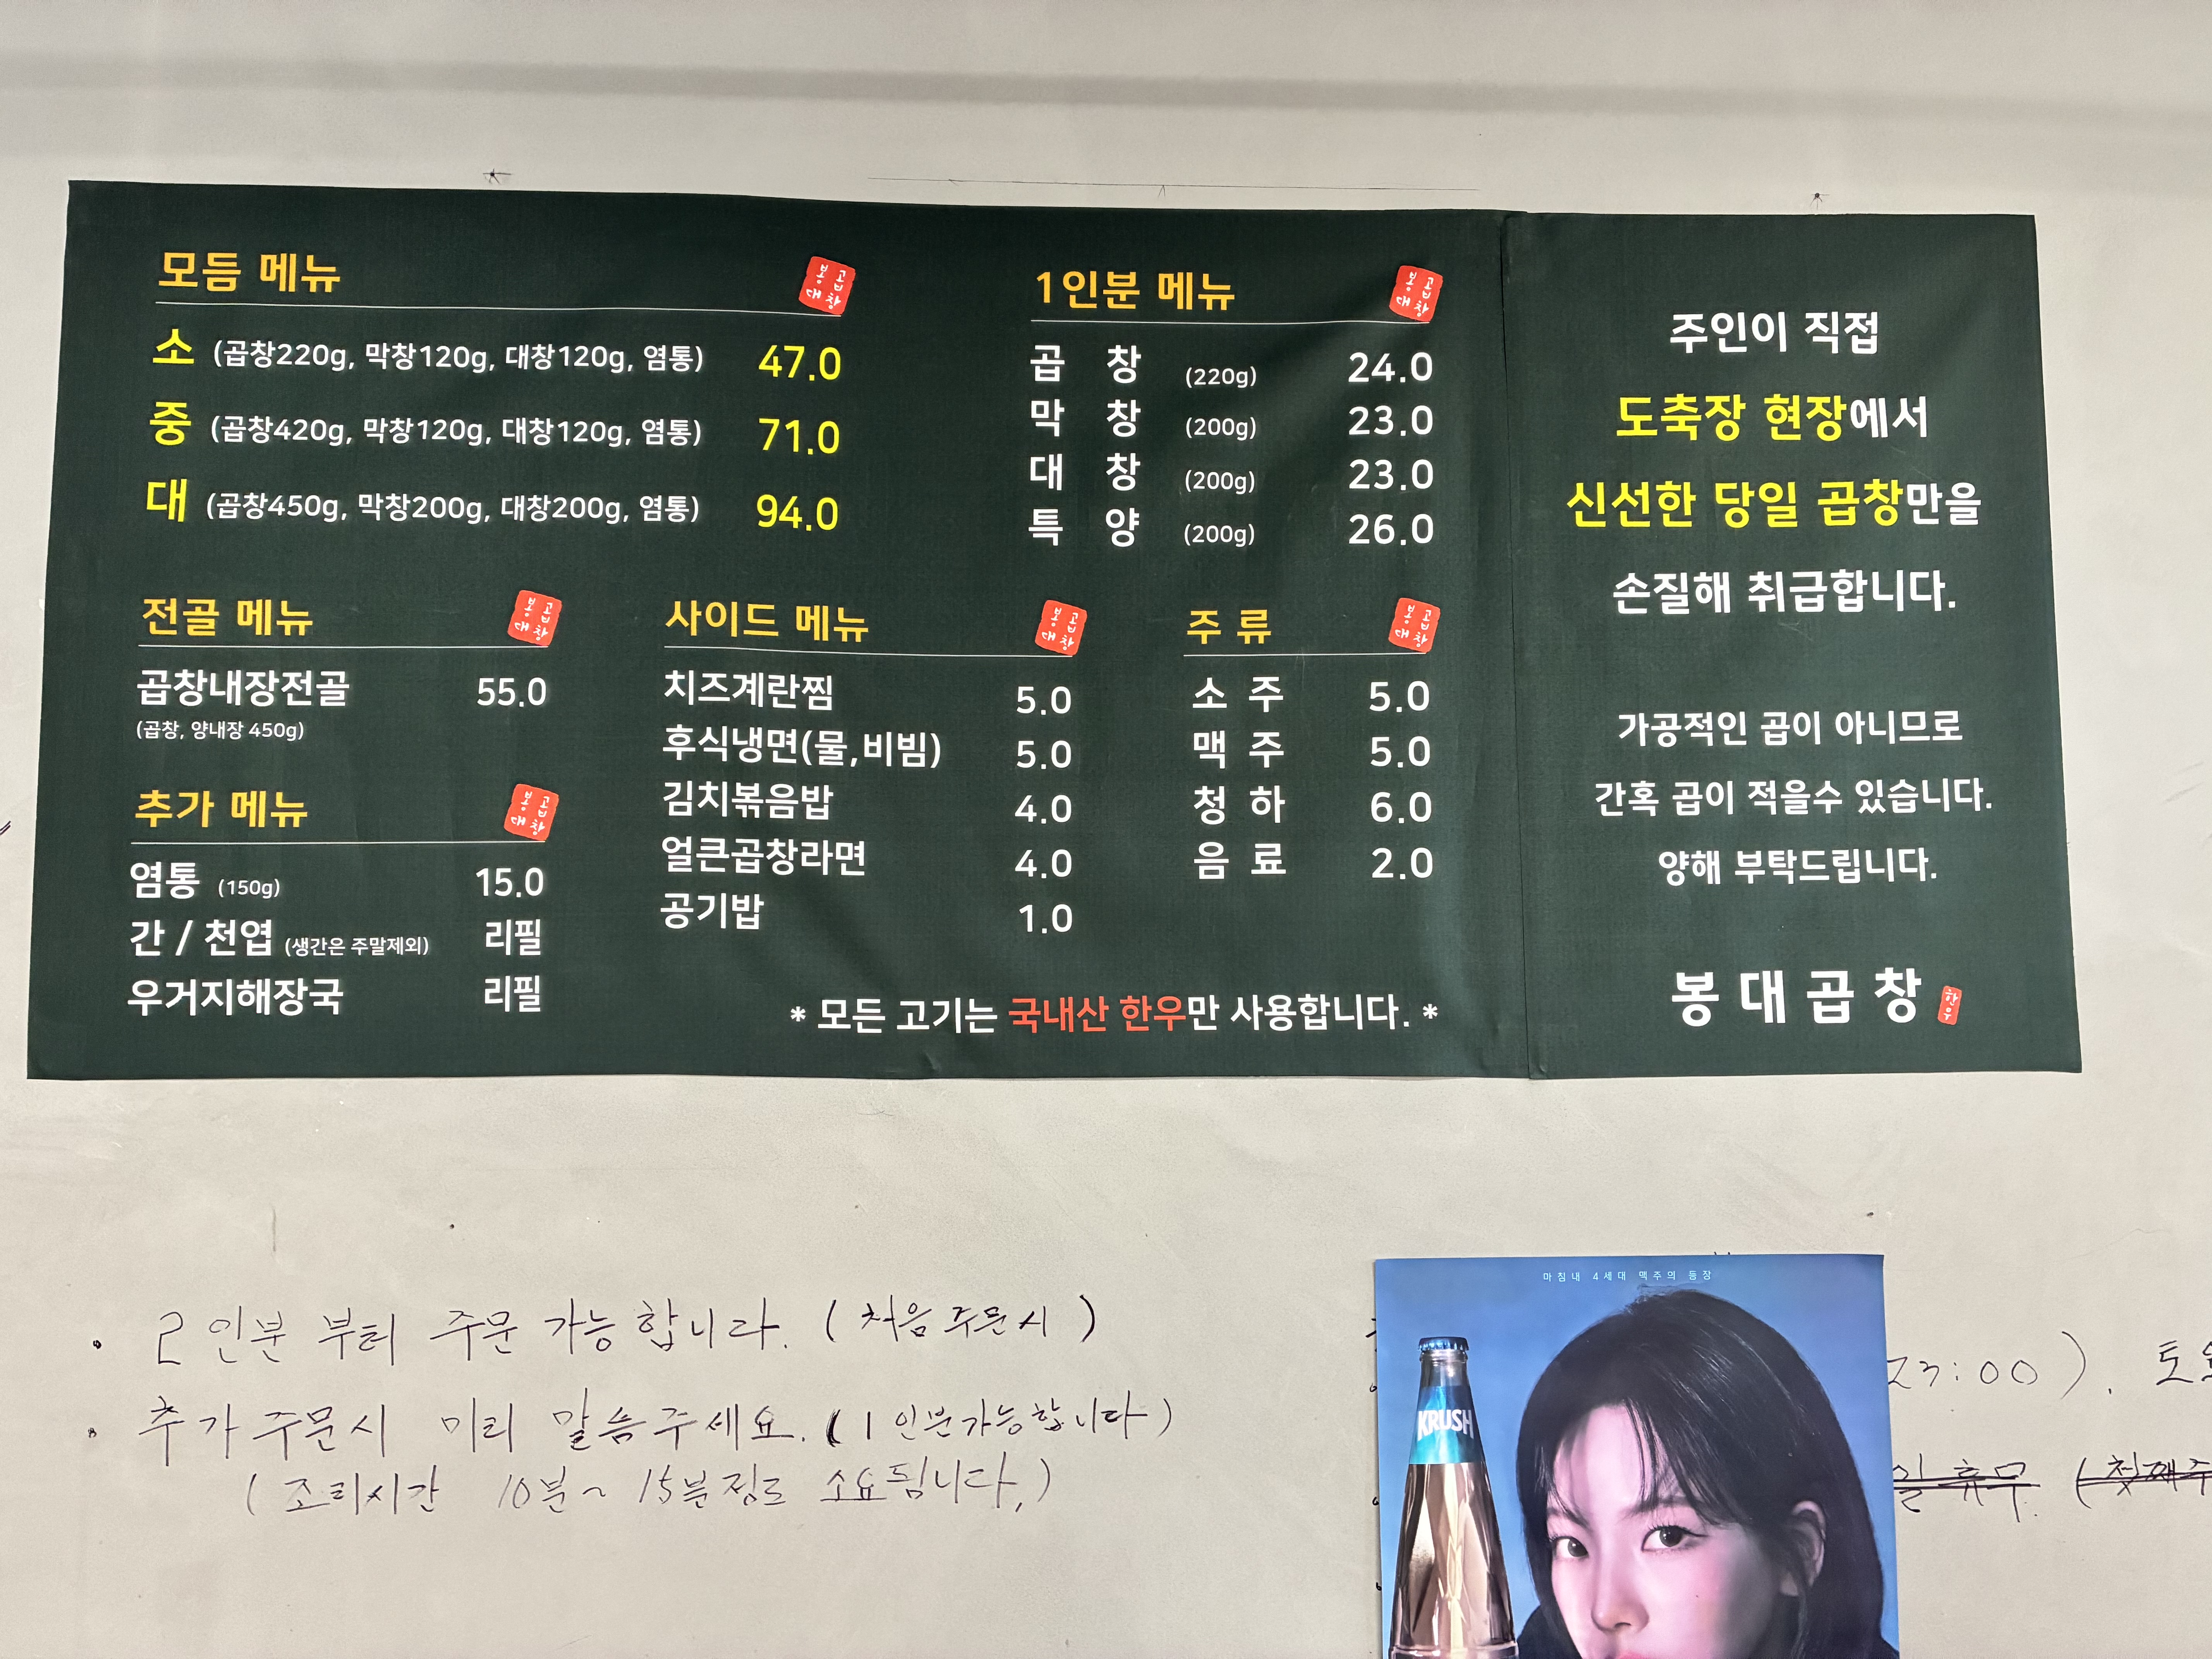 모듬 메뉴
봉대곱창
소 (곱창220g, 막창120g, 대창120g, 염통) 47.0
중 (곱창420g, 막창120g, 대창120g, 염통) 71.0
대 (곱창450g, 막창200g, 대창200g, 염통) 94.0
1인분 메뉴
봉대곱창
곱 창 (220g) 24.0
막 창 (200g) 23.0
대 창 (200g) 23.0
특 양 (200g) 26.0
전골 메뉴
봉대곱창
곱창내장전골 55.0
(곱창, 양내장 450g)
추가 메뉴
봉대곱창
염통 (150g) 15.0
간 / 천엽 (생간은 주말제외) 리필
우거지해장국 리필
사이드 메뉴
봉대곱창
치즈계란찜 5.0
후식냉면(물,비빔) 5.0
김치볶음밥 4.0
얼큰곱창라면 4.0
공기밥 1.0
주 류
봉대곱창
소 주 5.0
맥 주 5.0
청 하 6.0
음 료 2.0
* 모든 고기는 국내산 한우만 사용합니다. *
주인이 직접
도축장 현장에서
신선한 당일 곱창만을
손질해 취급합니다.
가공적인 곱이 아니므로
간혹 곱이 적을수 있습니다.
양해 부탁드립니다.
봉대곱창 한우
· 2인분 부터 주문 가능합니다. (처음주문시)
· 추가주문시 미리 말씀주세요. (1인분가능합니다)
(조리시간 10분~15분정도 소요됩니다.)
마침내 4세대 맥주의 등장
KRUSH
23:00). 토
일 휴무. (첫째주